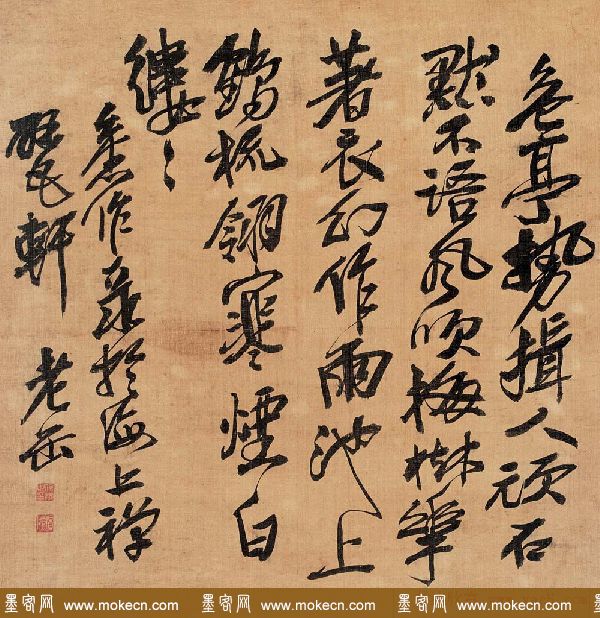 危亭勢揖人頑石
默不語風吹梅樹華
著衣幻作雨池上
鶴梳翎寒煙白
縷〻
作录於海上禪
甓軒 老缶
墨客网 www.mokecn.com 墨客网 www.mokecn.com 墨客网 www.mokecn.com